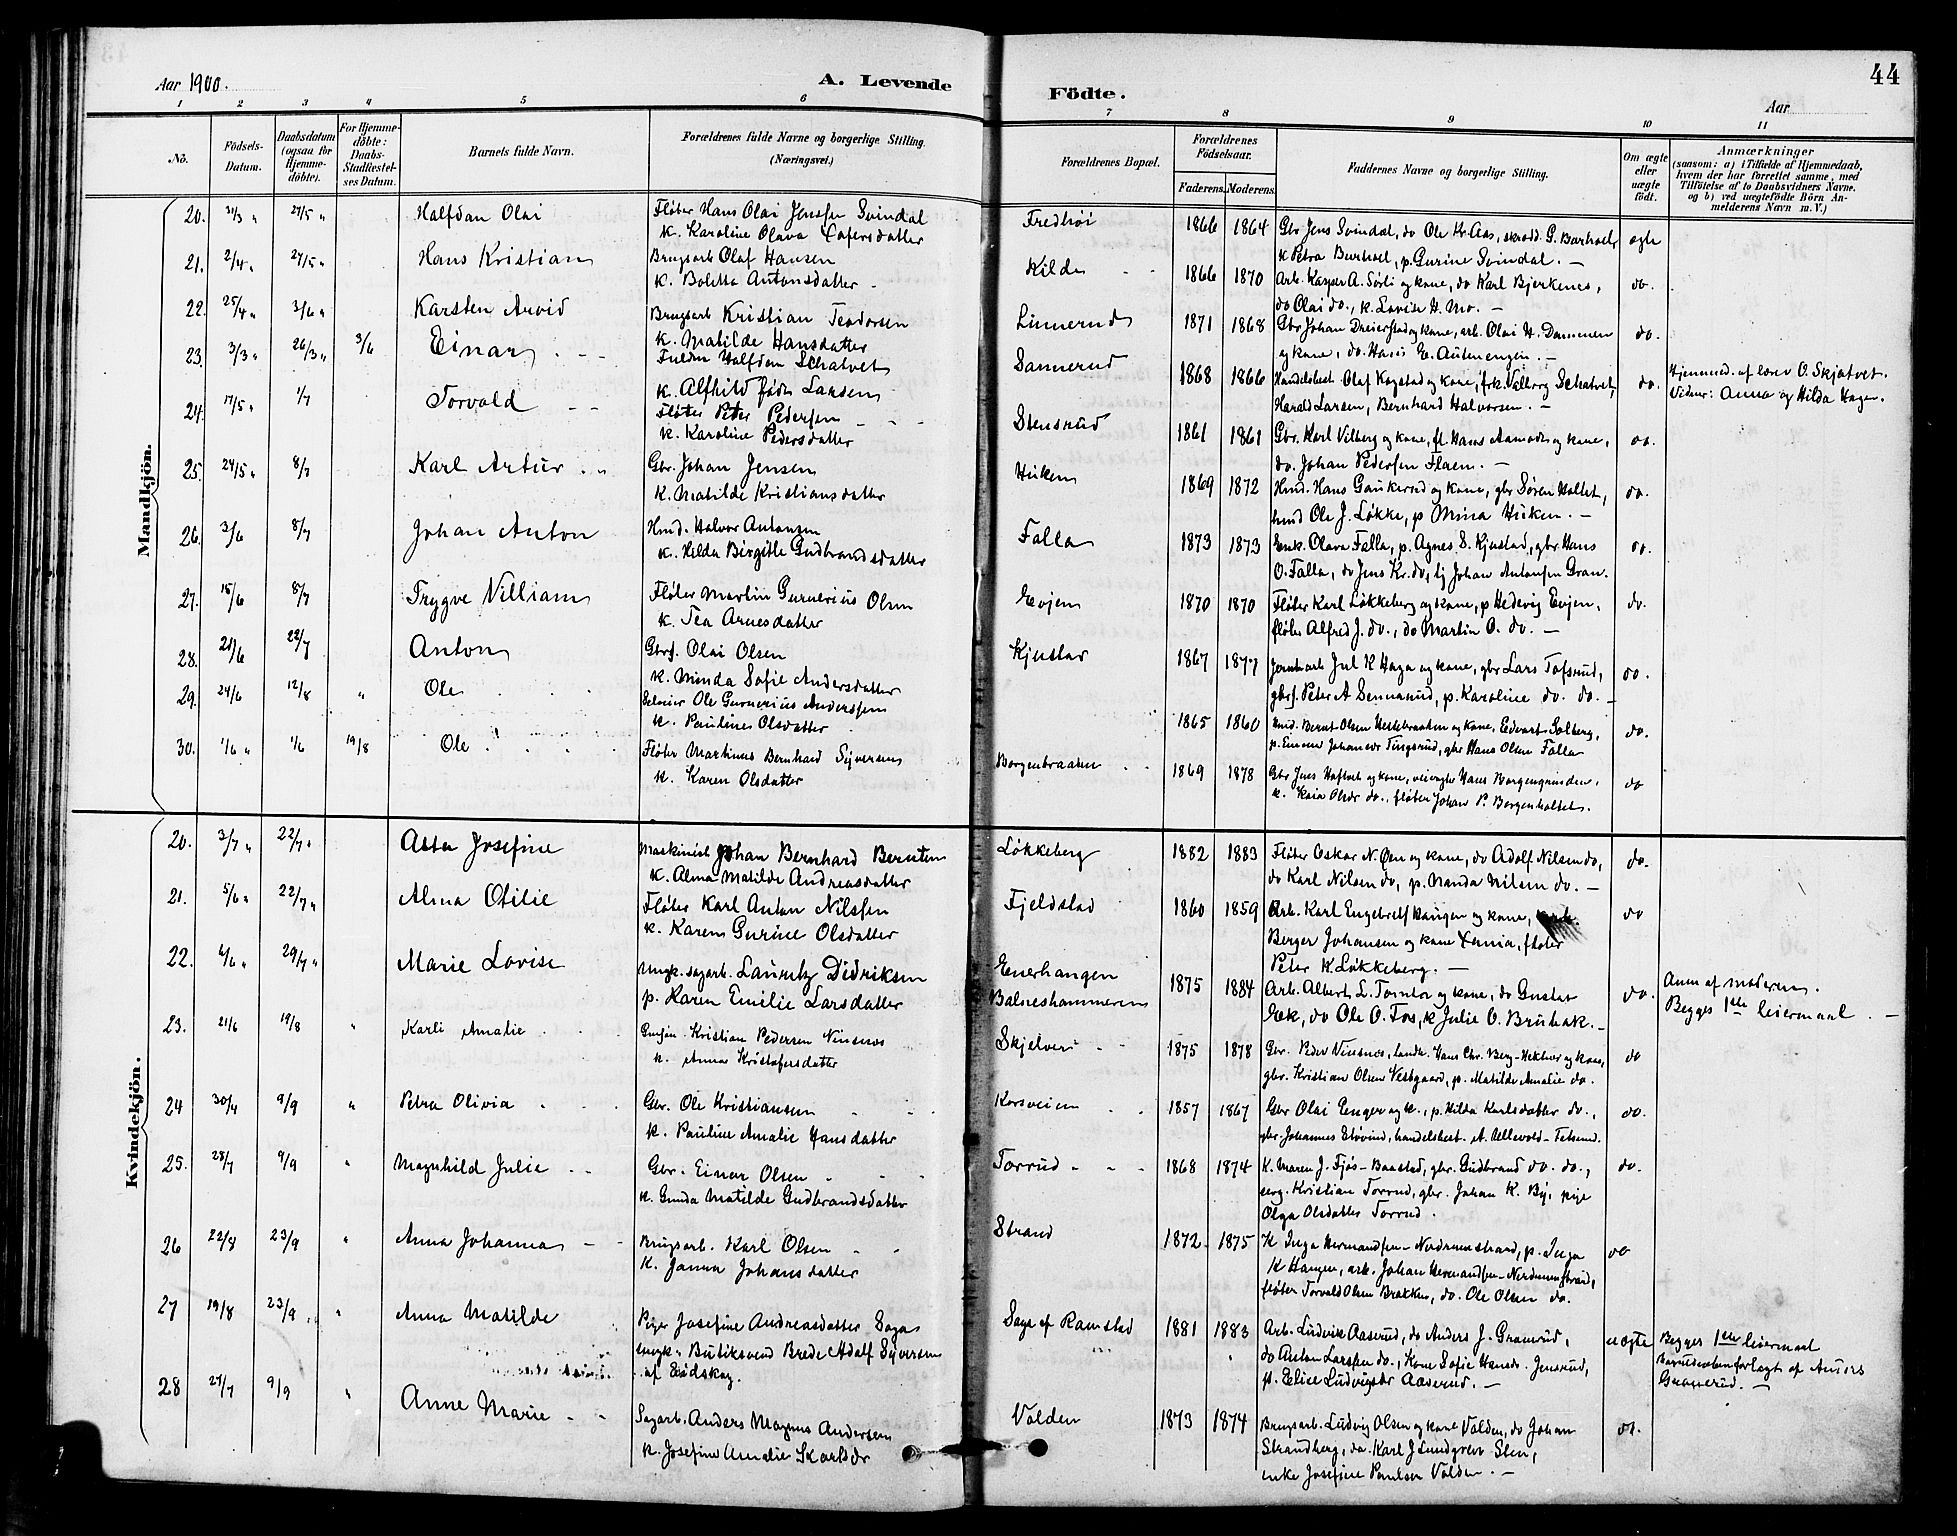 44
Aar 1900.
A. Levende
Födte.
Aar
1 2 3 4 5 6 7 8 9 10 11
No.
Födsels-
Datum.
Daabsdatum
(ogsaa for
Hjemme-
döbte).
For Hjemme-
döbte:
Daabs-
Stadfæstel-
ses Datum.
Barnets fulde Navn.
Forældrenes fulde Navne og borgerlige Stilling.
(Næringsvei.)
Forældrenes Bopæl.
Forældrenes
Födselsaar.
Faderens. Moderens.
Faddernes Navne og borgerlige Stilling.
Om ægte
eller
uægte
födt.
Anmærkninger
(saasom: a) i Tilfælde af Hjemmedaab,
hvem der har forrettet samme, med
Tilföielse af to Daabsvidners Navne.
og b) ved uægtefödte Börn An-
melderens Navn m. V.)
Mandkjön.
20. 31/3 " 27/5 " Halfdan Olai Fløter Hans Olai Jensen Svindal Fredhøi 1866 1864 Gbr Jens Svindal, do Ole Kr. Aas, skrædd. G. Barholt, ægte
k. Karoline Olava k Petra Burholt, p. Gurine Svindal. —
21. 2/4 " 27/5 " Hans Kristian Brugsarb Olaf Hansen Kilde 1866 1870 Arb. Kasper A. Sørli og kone, do Karl Bjerkenes, do.
k. Boletta Antonsdatter do Olai do., k. Lovise H. Mo. —
22. 25/4 " 3/6 " Karsten Arvid Brugsarb Kristian Teodorsen Linnerud 1871 1868 Gbr Johan Dreierstad og kone, arb. Olai H. Dammen do.
k. Matilde Hansdatter og kone, do. Hans E. —
23. 3/3 " 26/3 " 3/6 Einar Halfdan Schatvet Sannerud 1868 1866 Handelsbest. Olaf Kogstad og kone, frk. Valborg Schatvet, do. Hjemmed. af lærer O. Skjatvet.
k. Alfhild født Larsen Harald Larsen, Bernhard Halvorsen. — Vidner: Anna og Hilda Hagen.
24. 17/5 " 1/7 Torvald Fløter Peter Pedersen Stensrud 1861 1861 Gbr. Karl Vilberg og kone, fl. Hans Aamodt og kone, do.
k. Karoline Pedersdatter do. Johan Pedersen Flaen. —
25. 24/5 " 8/7 Karl Artur Gbr. Johan Jensen Huken 1869 1872 Hmd. Hans Gaukerud og kone, gbr Søren Holtet, do.
k. Matilde Kristiansdatter hmd Ole J. Løkke, p Mina Huken. —
26. 3/6 8/7 Johan Anton Hmd. Halvor Antonsen Falla 1873 1873 Enk. Olava Falla, p. Agnes S. Kjustad, gbr. Hans do.
k. Hilda Birgitte Gudbrandsdatter O. Falla, do Jens Kr. do, Johan Antonsen Gran.
27. 15/6 8/7 Trygve Villiam Fløter Martin Gunerius Olsen Evjen 1870 1870 Fløter Karl Løkkeberg og kone, p Hedevig Evjen, do.
k. Tea Arnesdatter fløter Alfred J. do., do Martin O. do. —
28. 21/6 22/7 Anton Gbrs. Olai Olsen Kjustad 1867 1877 Jernbarb Jul K Haga og kone, gbr Lars Tofsrud, do.
k. Minda Sofie Andersdatter gbrs. Peter A Sennerud, p. Karoline do. do. —
29. 24/6 12/8 " Ole Ole Gunerius Andersen 1865 1860 Hmd. Bernt Olsen og kone, Edvart Solberg, do.
k. Pauline Olsdatter p. Emma Johansdr Tingsrud, gbr Hans Olsen Falla
30. 1/6 " 1/6 19/8 Ole Fløter Martinus Bernhard Syversen Borgenbraaten 1869 1878 Gbr Jens Hoftvet og kone, veivogter Hans Borgengrinden, do
k. Karen Olsdatter k. Kaia Olsdr do., fløter Johan P. Borgenholtet.
Kvindekjön.
20. 3/7 " 22/7 " Asta Josefine Maskinist Johan Bernhard Berntsen Løkkeberg 1882 1883 Fløter Oskar N. Øen og kone, do Adolf Nilsen do, do.
k. Alma Matilde Andreasdatter do Karl Nilsen do, p. Nanda Nilsen do. —
21. 5/6 " 22/7 " Alma Otilie Fløter Karl Anton Nilsen Fjeldstad 1860 1859 Arb. Karl Engebretsf Haugen og kone, do
k. Karen Gurine Olsdatter Berger Johansen og kone Xania, fløter
Peter K. Løkkeberg. —
22. 4/6 " 29/7 " Marie Lovise Ungk. sagarb. Lauretz Didriksen Enerhaugen 1875 1884 Arb. Albert L. Tomter og kone, do Gustav do. Anm af moderen.
p. Karen Emilie Larsdatter Balneshammeren Eek, do Ole O. Fos, k Julie O. Bruhak. — Begges 1ste leiermaal. —
23. 21/6 19/8 " Karli Amalie Kristian Pedersen Vinsnes Skjelver 1875 1878 Gbr. Peder Vinsnes, landh. Hans Chr. Berg-Hektner og kone, do
k. Anna Kristofersdatter gbr. Kristian Olsen Vestgaard, p. Matilde Amalie do.
24 30/4 9/9 " Petra Olivia Gbr. Ole Kristiansen Korsveien 1857 1867 Gbr Olai Enger og k., p. Hilda Karlsdatter do., do.
k. Pauline Amalie Hansdatter gbr. Johannes Støvind, handelsbest. A. Ullevold-Fetsund.
25. 28/7 9/9 " Magnhild Julie Gbr. Einar Olsen Torrud 1868 1874 K. Maren J. Fjøs-Baastad, gbr. Gudbrand do. do., do.
k. Gunda Matilde Gudbrandsdatter serg. Kristian Torrud, gbr. Johan K. By, pige
Olga Olsdatter Torrud.
26 22/8 23/9 " Anna Johanna Brugsarb. Karl Olsen Strand 1872 1875 K Inga Hermandsen-Nordrumstrand, p. Inga do
k. Janna Johansdatter K Haugen, arb. Johan Hermandsen-Nordrumstrand,
fløter Torvald Olsen Brekken, do. Ole Olsen do.
27 19/8 23/9 " Anna Matilde Pige Josefine Andreasdatter Saga Saga af Ramstad 1881 1883 Arb. Ludvik Aaserud, do Anders J. Graverud, uægte Begges 1ste leiermaal
ungk. Butiksvend Brede Adolf Syversen do Anton Larsen do., Kone Sofie Hansdr. Jensrud, forlagt af Anders
af Eidskog. p. Elise Ludvigsdr Aaserud. — Graverud. —
28 27/7 9/9 " Anne Marie Sagarb. Anders Magnus Andersen Volden 1873 1874 Brugsarb. Ludvig Olsen og kone Volden, do Johan do.
k. Josefine Amalie Skarlsdr Strandberg, do. Karl J Lundgren Sten,
enke Josefine Paulsen Volden. —